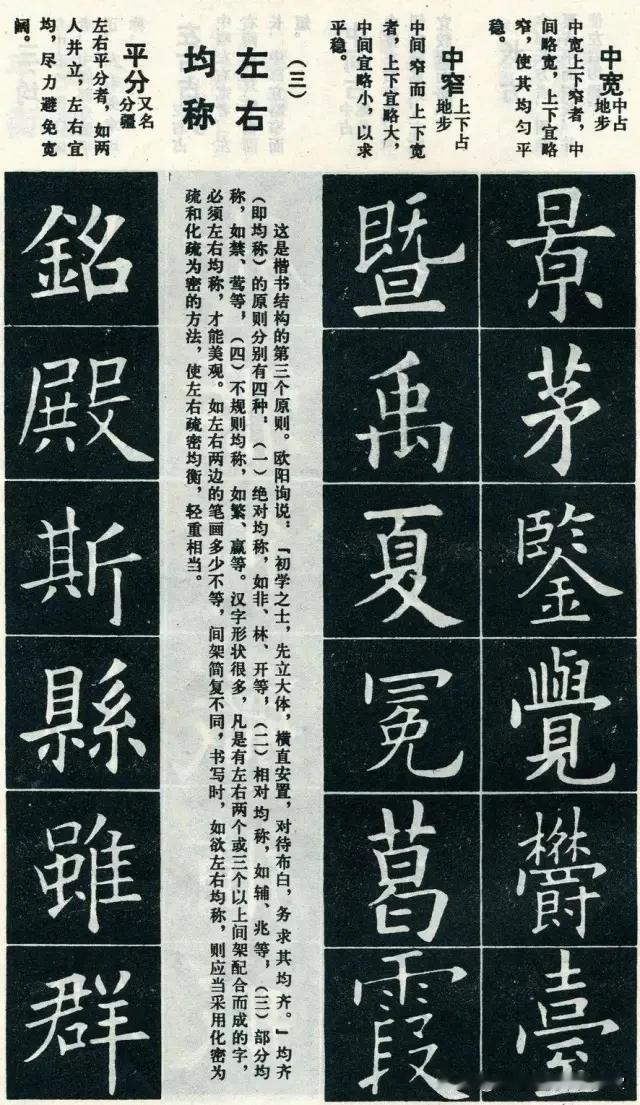 中宽
中占
地步
中宽上下窄者，中
间略宽，上下宜略
窄，使其均匀平
稳。
景茅鑒覺欝臺
中窄
上下占
地步
中间窄而上下宽
者，上下宜略大，
中间宜略小，以求
平稳。
暨禹夏冕葛霞
（三）
左右
均称
这是楷书结构的第三个原则。欧阳询说：「初学之士，先立大体，横直安置，对待布白，务求其均齐。」均齐
（即均称）的原则分别有四种，（一）绝对均称，如非、林、开等，（二）相对均称，如辅、兆等，（三）部分均
称，如禁、莺等，（四）不规则均称，如繁、赢等。汉字形状很多，凡是有左右两个或三个以上间架配合而成的字，
必须左右均称，才能美观。如左右两边的笔画多少不等，间架简复不同，书写时，如欲左右均称，则应当采用化密为
疏和化疏为密的方法，使左右疏密均衡，轻重相当。
平分
又名
分疆
左右平分者，如两
人并立，左右宜
均，尽力避免宽
阔。
銘殿斯縣雖群